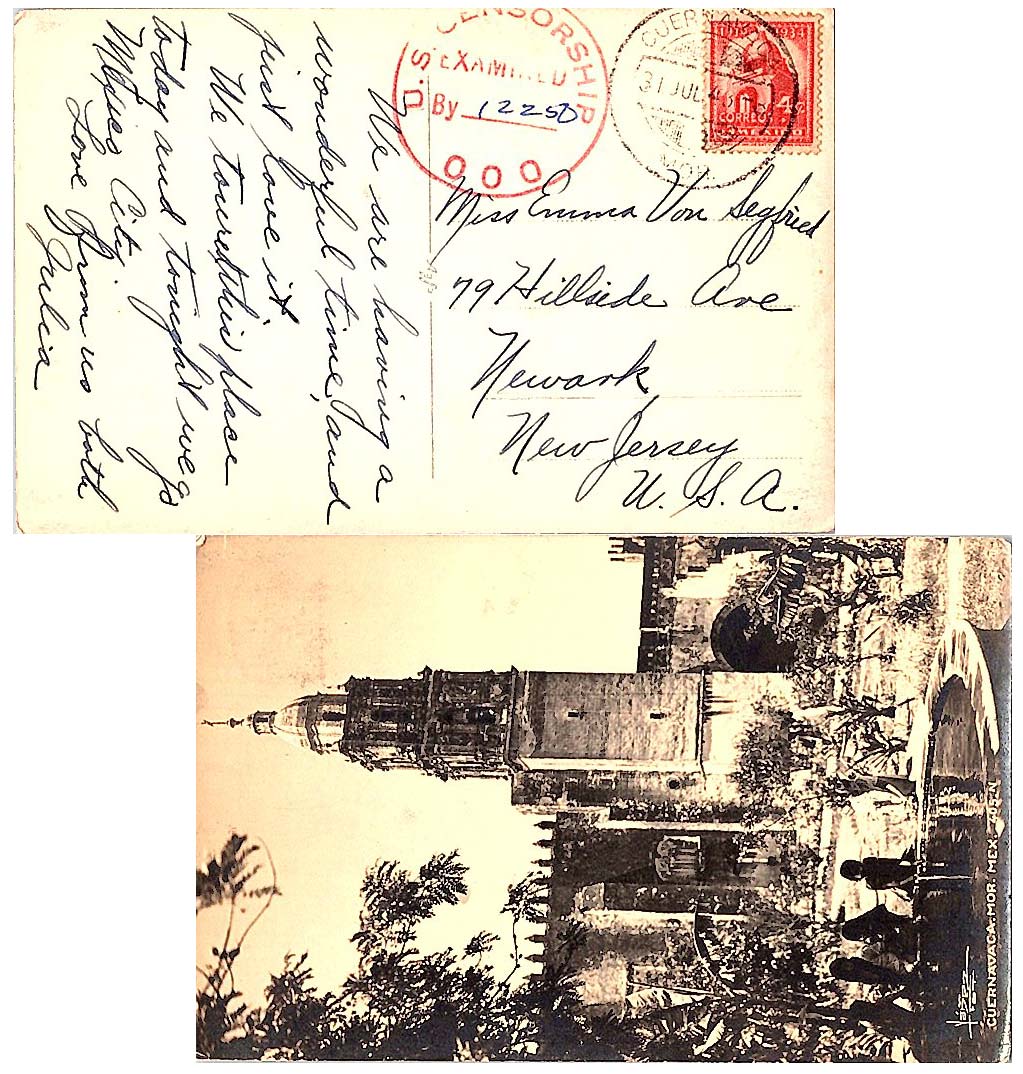 We are having a
wonderful time, and
just love it
We toured this place
today and tonight we go
Mexico City.
Love from us both
Julia
U.S. CENSORSHIP
EXAMINED
By 12250
000
CUERNAVACA
31 JUL 4
MOR
1934
4¢
CORREOS
MEXICO
Miss Emma Von Segfried
79 Hillside Ave
Newark,
New Jersey
U. S. A.
CUERNAVACA-MOR-MEX-